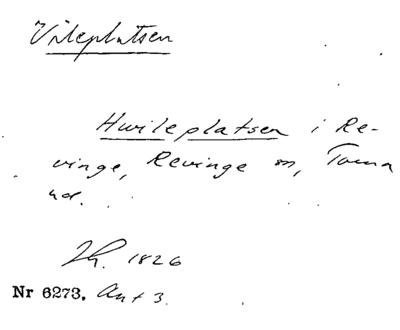 Vileplatsen
Hwileplatsen i Re-
vinge, Revinge sn, Torna
hd.
Zh. 1826
Nr 6273. Ant 3.